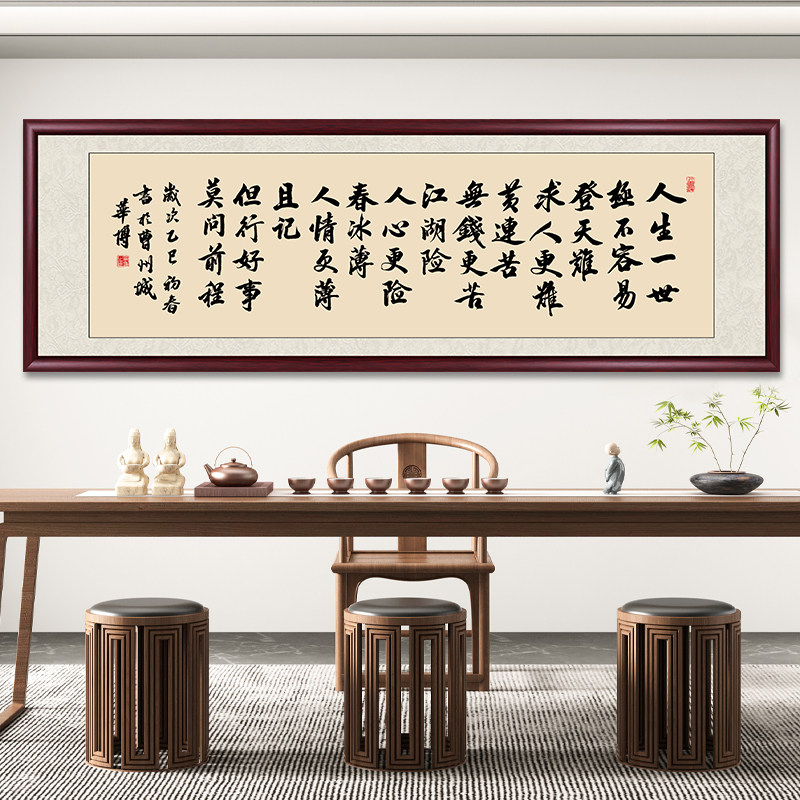 人生一世
極不容易
登天難
求人更難
黄連苦
無錢更苦
江湖险
人心更险
春冰薄
人情更薄
且记
但行好事
莫问前程
歲次乙巳初春
書於曹州城
華博